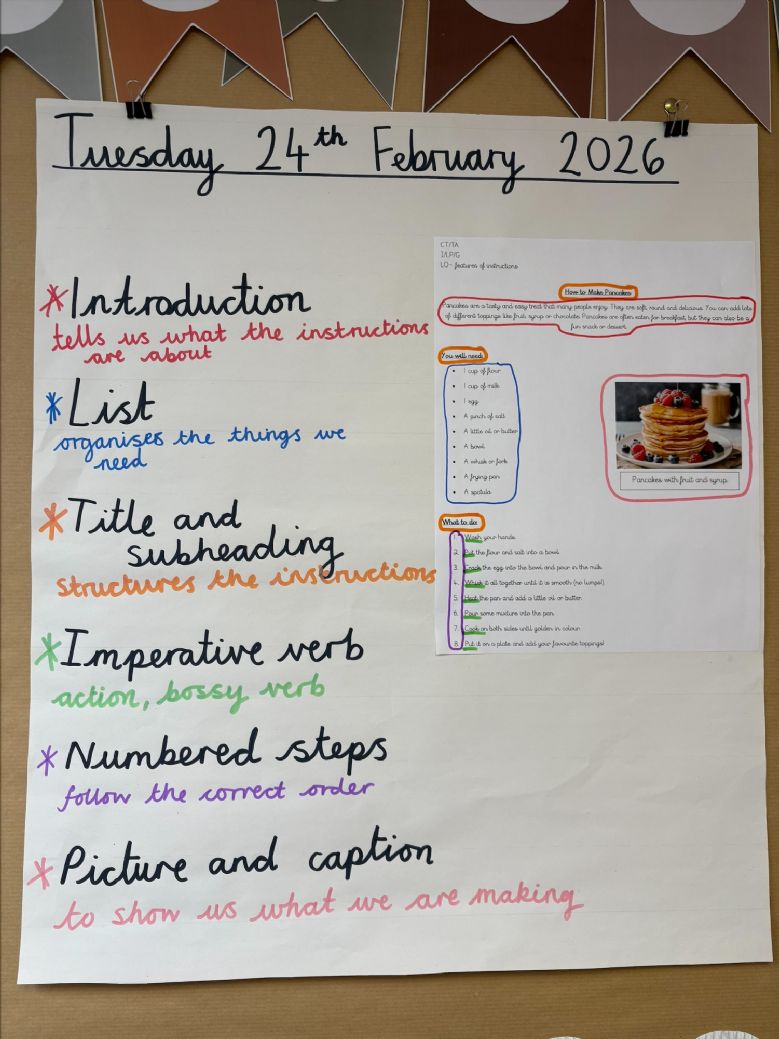 Tuesday 24th February 2026
*Introduction
tells us what the instructions
are about
*List
organises the things we
need
*Title and
subheading
structures the instructions
*Imperative verb
action, bossy verb
*Numbered steps
follow the correct order
*Picture and caption
to show us what we are making
CT/TA
I/LP/G
LO - features of instructions
How to Make Pancakes
Pancakes are a tasty and easy treat that many people enjoy. They are soft, round and delicious. You can add lots
of different toppings like fruit, syrup or chocolate. Pancakes are often eaten for breakfast, but they can also be a
fun snack or dessert.
You will need:
• 1 cup of flour
• 1 cup of milk
• 1 egg
• A pinch of salt
• A little oil or butter
• A bowl
• A whisk or fork
• A frying pan
• A spatula
Pancakes with fruit and syrup.
What to do:
1. Wash your hands.
2. Put the flour and salt into a bowl.
3. Crack the egg into the bowl and pour in the milk.
4. Whisk it all together until it is smooth (no lumps!)
5. Heat the pan and add a little oil or butter.
6. Pour some mixture into the pan.
7. Cook on both sides until golden in colour.
8. Put it on a plate and add your favourite toppings!